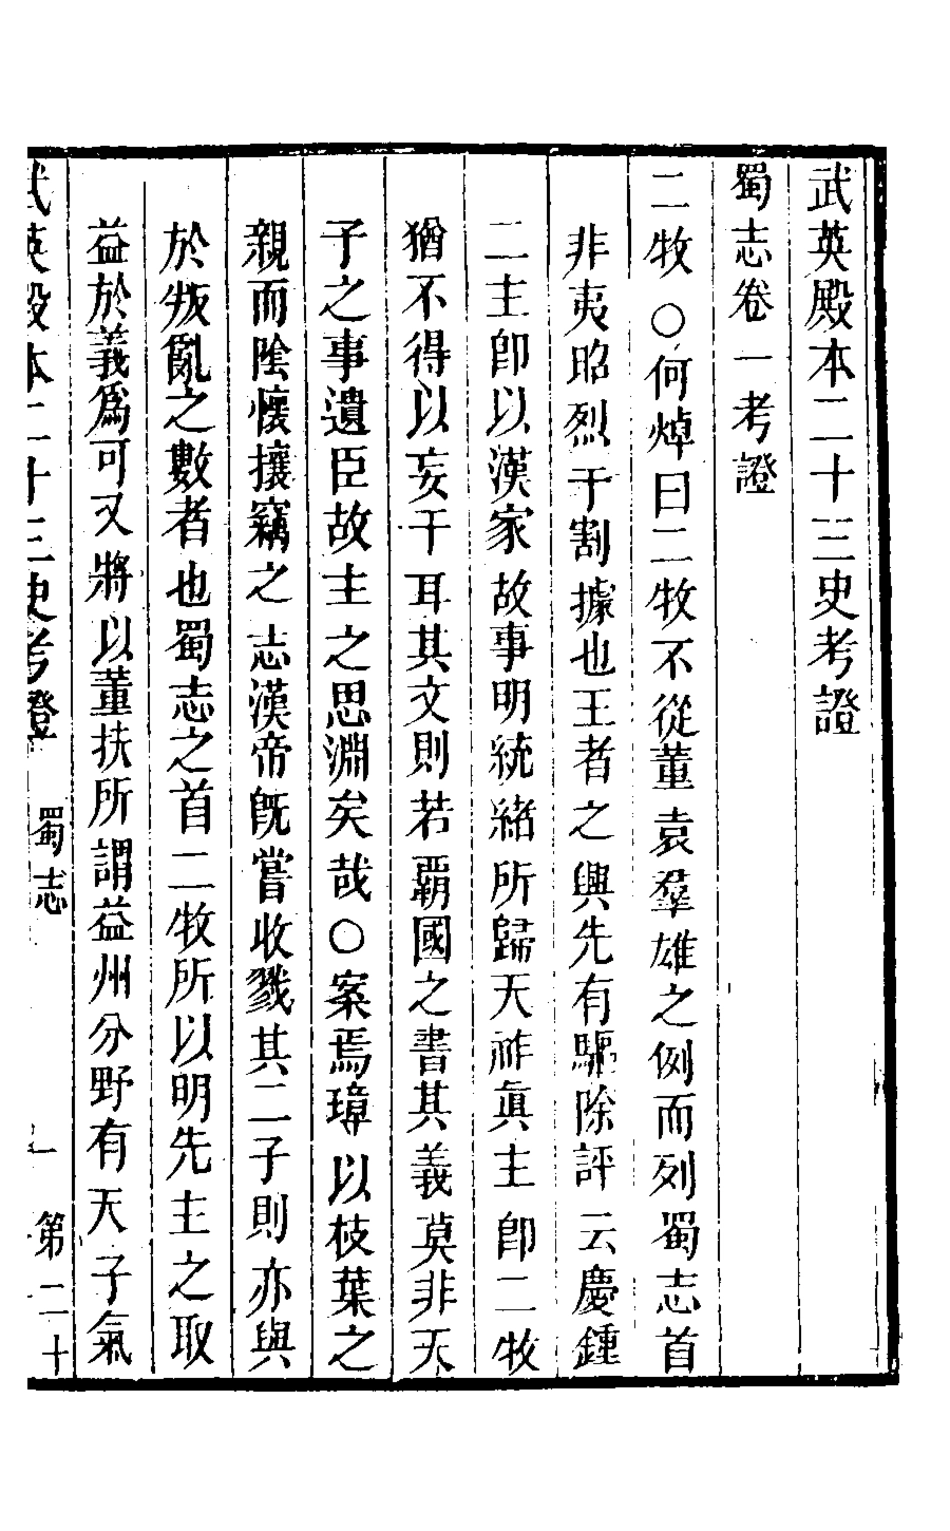 武英殿本二十三史考證
蜀志卷一考證
二牧〇何焯曰二牧不從董袁羣雄之例而列蜀志首
非夷昭烈于割據也王者之興先有驅除評云慶鍾
二主卽以漢家故事明統緒所歸天祚眞主卽二牧
猶不得以妄干耳其文則若覇國之書其義莫非天
子之事遺臣故主之思淵矣哉〇案焉璋以枝葉之
親而陰懷攘竊之志漢帝旣嘗收戮其二子則亦與
於叛亂之數者也蜀志之首二牧所以明先主之取
益於義爲可又將以董扶所謂益州分野有天子氣
武英殿本二十三史考證 蜀志 一 第二十